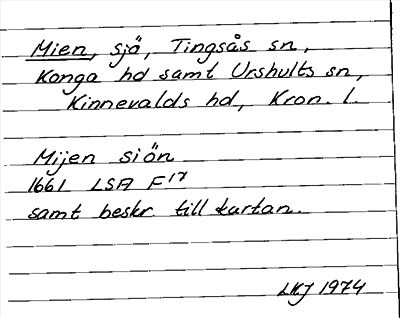 Mien, sjö, Tingsås sn,
Konga hd samt Urshults sn,
Kinnevalds hd, Kron. l.
Mijen siön
1661 LSA F17
samt beskr. till kartan.
LHJ 1974